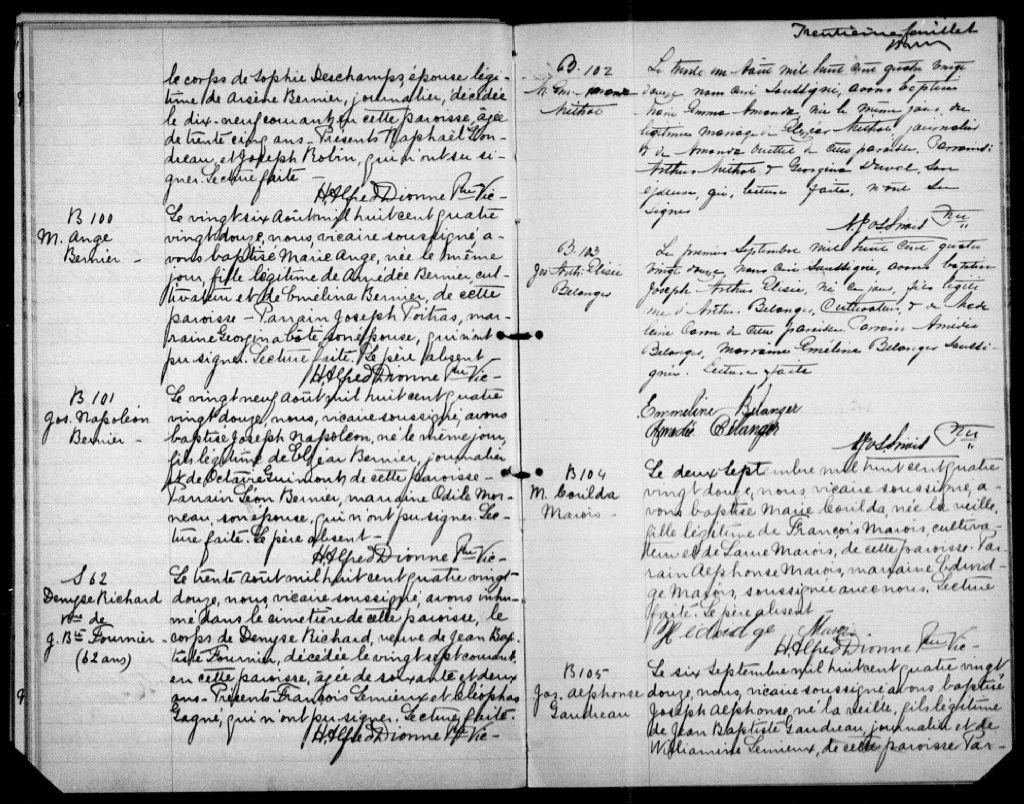 le corps de Sophie Deschamps, épouse légi-
time de Arsène Bernier, journalier, décédée
le dix-neuf courant en cette paroisse, agée
de trente cinq ans - Présents Raphaël Gon-
dreau, et Joseph Robin, qui n'ont su si-
gner. Lecture faite -
H. Alfred Dionne Ptre Vic-
B 100
M. Ange
Bernier -
Le vingt six Août mil huit cent quatre
vingt douze, nous, vicaire soussigné a-
vons baptisé Marie Ange, née le même
jour, fille légitime de Amédée Bernier, cul-
tivateur et de Emélina Bernier, de cette
paroisse - Parrain Joseph Poitras, mar-
raine Georgina Côté son épouse, qui n'ont
pu signer. Lecture faite. Le père absent -
H. Alfred Dionne Ptre Vic-
B 101
Jos. Napoléon
Bernier -
Le vingt neuf Août mil huit cent quatre
vingt douze, nous, vicaire soussigné, avons
baptisé Joseph Napoléon, né le même jour,
fils légitime de Elzéar Bernier, journalier
et de Octavie Guimont, de cette paroisse -
Parrain Léon Bernier, marraine Odile Mor-
neau, son épouse, qui n'ont pu signer. Lec-
ture faite. Le père absent -
H. Alfred Dionne Ptre Vic-
S 62
Denyse Richard
Vve de
J. Bte Fournier -
(62 ans)
Le trente Août mil huit cent quatre vingt
douze, nous, vicaire soussigné, avons inhu-
mé dans le cimetière de cette paroisse, le
corps de Denyse Richard, veuve de Jean Bap-
tiste Fournier, décédée le vingt sept courant,
en cette paroisse, agée de soixante et deux
ans - Présents François Lemieux et Cléophas
Gagné, qui n'ont pu signer. Lecture faite.
H. Alfred Dionne Ptre Vic-
Trentième feuillet
B. 102
M. Em.
Méthot
Le trente un Août mil huit cent quatre vingt
douze nous curé soussigné, avons baptisé
Marie Emma Amanda, née le même jour, du
légitime mariage de Elzéar Méthot, journalier
& de Amanda Ouellet de cette paroisse. Parrain
Arthur Méthot & Georgina Duval, son
épouse, qui, lecture faite, n'ont su
signer
Ptre
B. 103
Jos. Arth. Elisée
Belanger
Le premier Septembre mil huit cent quatre
vingt douze, nous curé soussigné, avons baptisé
Joseph Arthur Elisée, né ce jour, fils légiti
me d'Arthur Belanger, Cultivateur, & de Made
laine Caron de cette paroisse. Parrain Amédée
Belanger, Marraine Eméline Belanger soussi-
gnés. Lecture faite
Emmeline Bélanger
Amédée Bélanger
Ptre
B 104
M. Corilda
Marois -
Le deux Septembre mil huit cent quatre
vingt douze, nous, vicaire soussigné, a-
vons baptisé Marie Corilda, née la veille,
fille légitime de François Marois, cultiva-
teur et de Laure Marois, de cette paroisse. Par-
rain Alphonse Marois, marraine Edwid-
ge Marois, soussignée avec nous. Lecture
faite. Le père absent -
Hedwidge Marois
H. Alfred Dionne Ptre Vic-
B 105
Jos. Alphonse
Gaudreau
Le six Septembre mil huit cent quatre vingt
douze, nous, vicaire soussigné avons baptisé
Joseph Alphonse, né la veille, fils légitime
de Jean Baptiste Gaudreau, journalier et de
Williamine Lemieux, de cette paroisse Par-